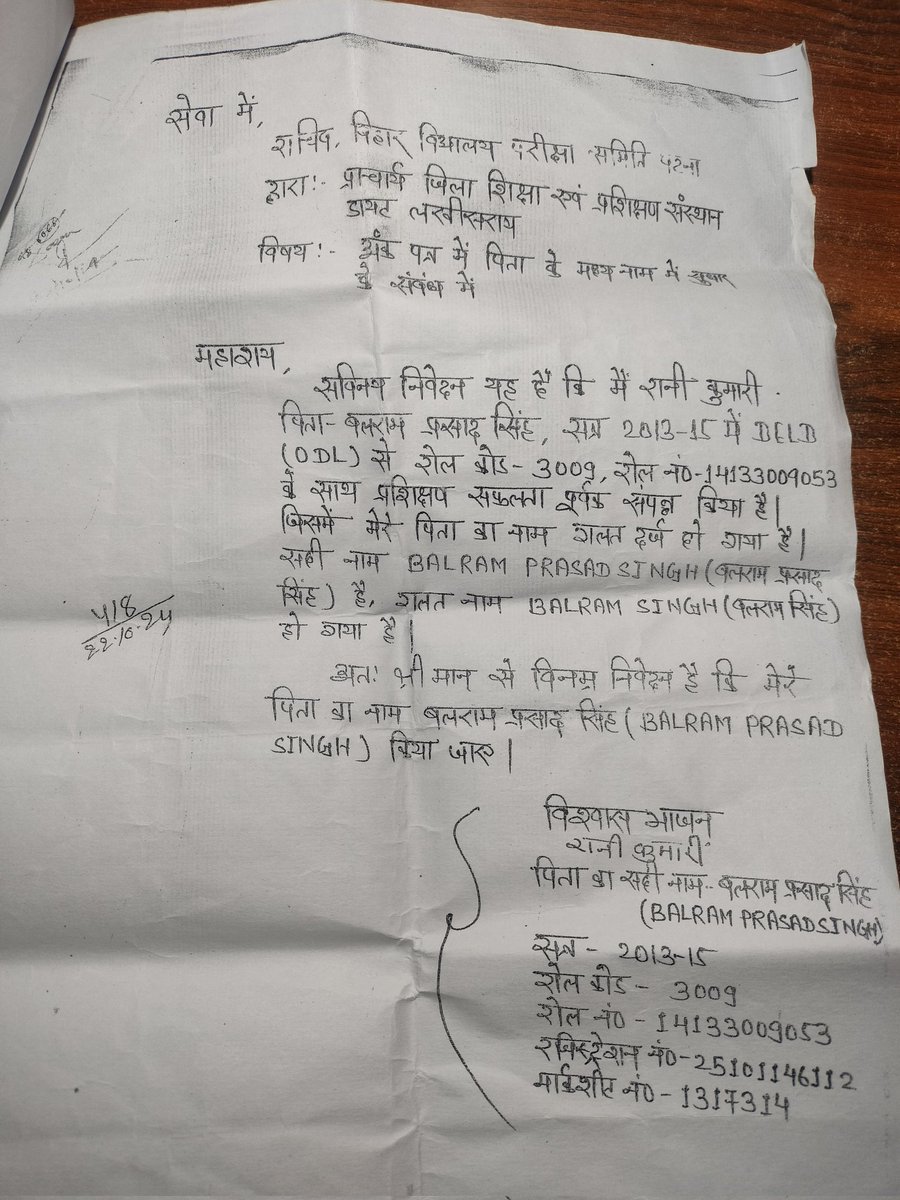 सेवा में,
सचिव, बिहार विद्यालय परीक्षा समिति पटना
द्वारा:- प्राचार्य जिला शिक्षा एवं प्रशिक्षण संस्थान
डायट लखीसराय
विषय:- अंक पत्र में पिता के मध्य नाम में सुधार
के संबंध में
महाशय,
सविनय निवेदन यह है कि मैं रानी कुमारी
पिता- बलराम प्रसाद सिंह, सत्र 2013-15 में DELD
(ODL) से रोल कोड- 3009, रोल नं०-14133009053
के साथ प्रशिक्षण सफलता पूर्वक संपन्न किया है।
जिसमें मेरे पिता का नाम गलत दर्ज हो गया है।
सही नाम BALRAM PRASAD SINGH (बलराम प्रसाद
सिंह) है, गलत नाम BALRAM SINGH (बलराम सिंह)
हो गया है।
418
22.10.24
अतः श्री मान से विनम्र निवेदन है कि मेरे
पिता का नाम बलराम प्रसाद सिंह (BALRAM PRASAD
SINGH) किया जाए।
विश्वास भाजन
रानी कुमारी
पिता का सही नाम- बलराम प्रसाद सिंह
(BALRAM PRASAD SINGH)
सत्र - 2013-15
रोल कोड - 3009
रोल नं० - 14133009053
रजिस्ट्रेशन नं०-25101146112
मार्कशीट नं० - 1317314